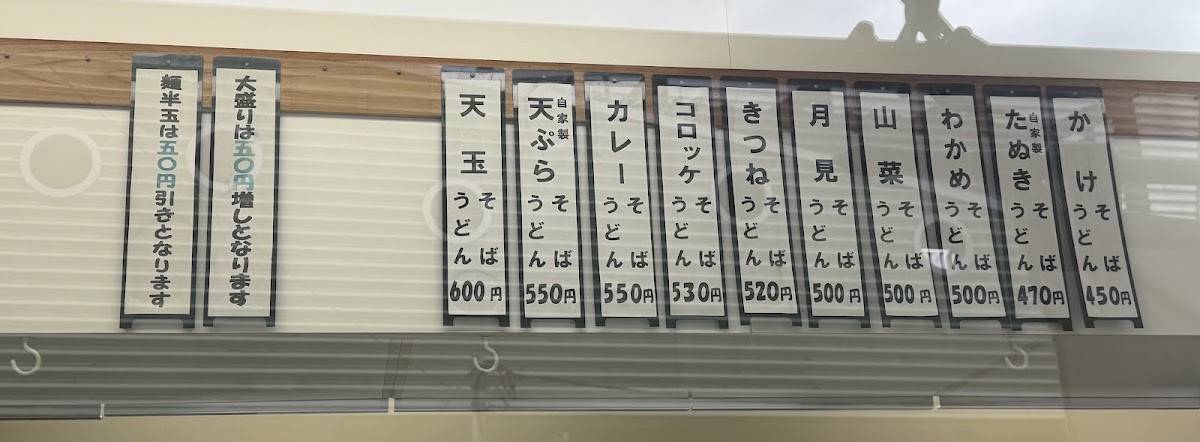 かけそばうどん450円
自家製たぬきそばうどん470円
わかめそばうどん500円
山菜そばうどん500円
月見そばうどん500円
きつねそばうどん520円
コロッケそばうどん530円
カレーそばうどん550円
自家製天ぷらそばうどん550円
天玉そばうどん600円
大盛りは五〇円増しとなります
麺半玉は五〇円引きとなります